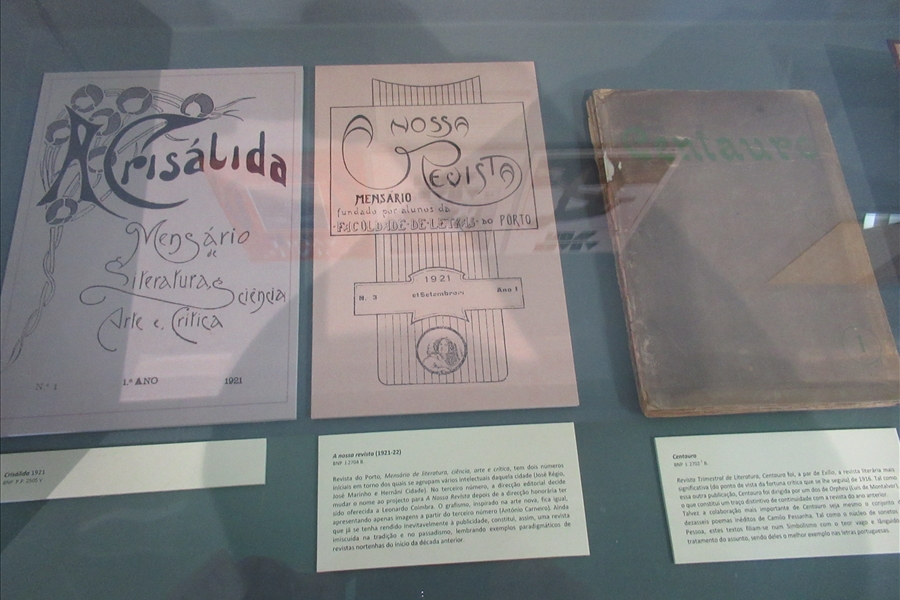 A Crisálida
Mensário
de
Literatura, Sciência
Arte e Critica
N.º 1 1.º ANO 1921
A NOSSA
REVISTA
MENSÁRIO
fundado por alunos da
FACULDADE·DE·LETRAS·DO PORTO
1921
N. 3 Setembro Ano I
Centauro
1
Crisálida 1921
A nossa revista (1921-22)
BNP J.2704 B.
Revista do Porto, Mensário de literatura, ciência, arte e crítica, tem dois números
iniciais em torno dos quais se agrupam vários intelectuais daquela cidade (José Régio,
José Marinho e Hernâni Cidade). No terceiro número, a direcção editorial decide
mudar o nome ao projecto para A Nossa Revista depois de a direcção honorária ter
sido oferecida a Leonardo Coimbra. O grafismo, inspirado na arte nova, fica igual,
apresentando apenas imagens a partir do terceiro número (António Carneiro). Ainda
que já se tenha rendido inevitavelmente à publicidade, constitui, assim, uma revista
imiscuída na tradição e no passadismo, lembrando exemplos paradigmáticos de
revistas nortenhas do início da década anterior.
Centauro
BNP J. 2702 B.
Revista Trimestral de Literatura, Centauro foi, a par de Exílio, a revista literária mais
significativa (do ponto de vista da fortuna crítica que se lhe seguiu) de 1916. Tal como
essa outra publicação, Centauro foi dirigida por um dos de Orpheu (Luís de Montalvor),
o que constitui um traço distintivo de continuidade com a revista do ano anterior.
Talvez a colaboração mais importante de Centauro seja mesmo o conjunto
dezasseis poemas inéditos de Camilo Pessanha. Tal como o núcleo de sonetos
Pessoa, estes textos filiam-se num Simbolismo com o teor vago e lânguido
tratamento do assunto, sendo deles o melhor exemplo nas letras portuguesas.